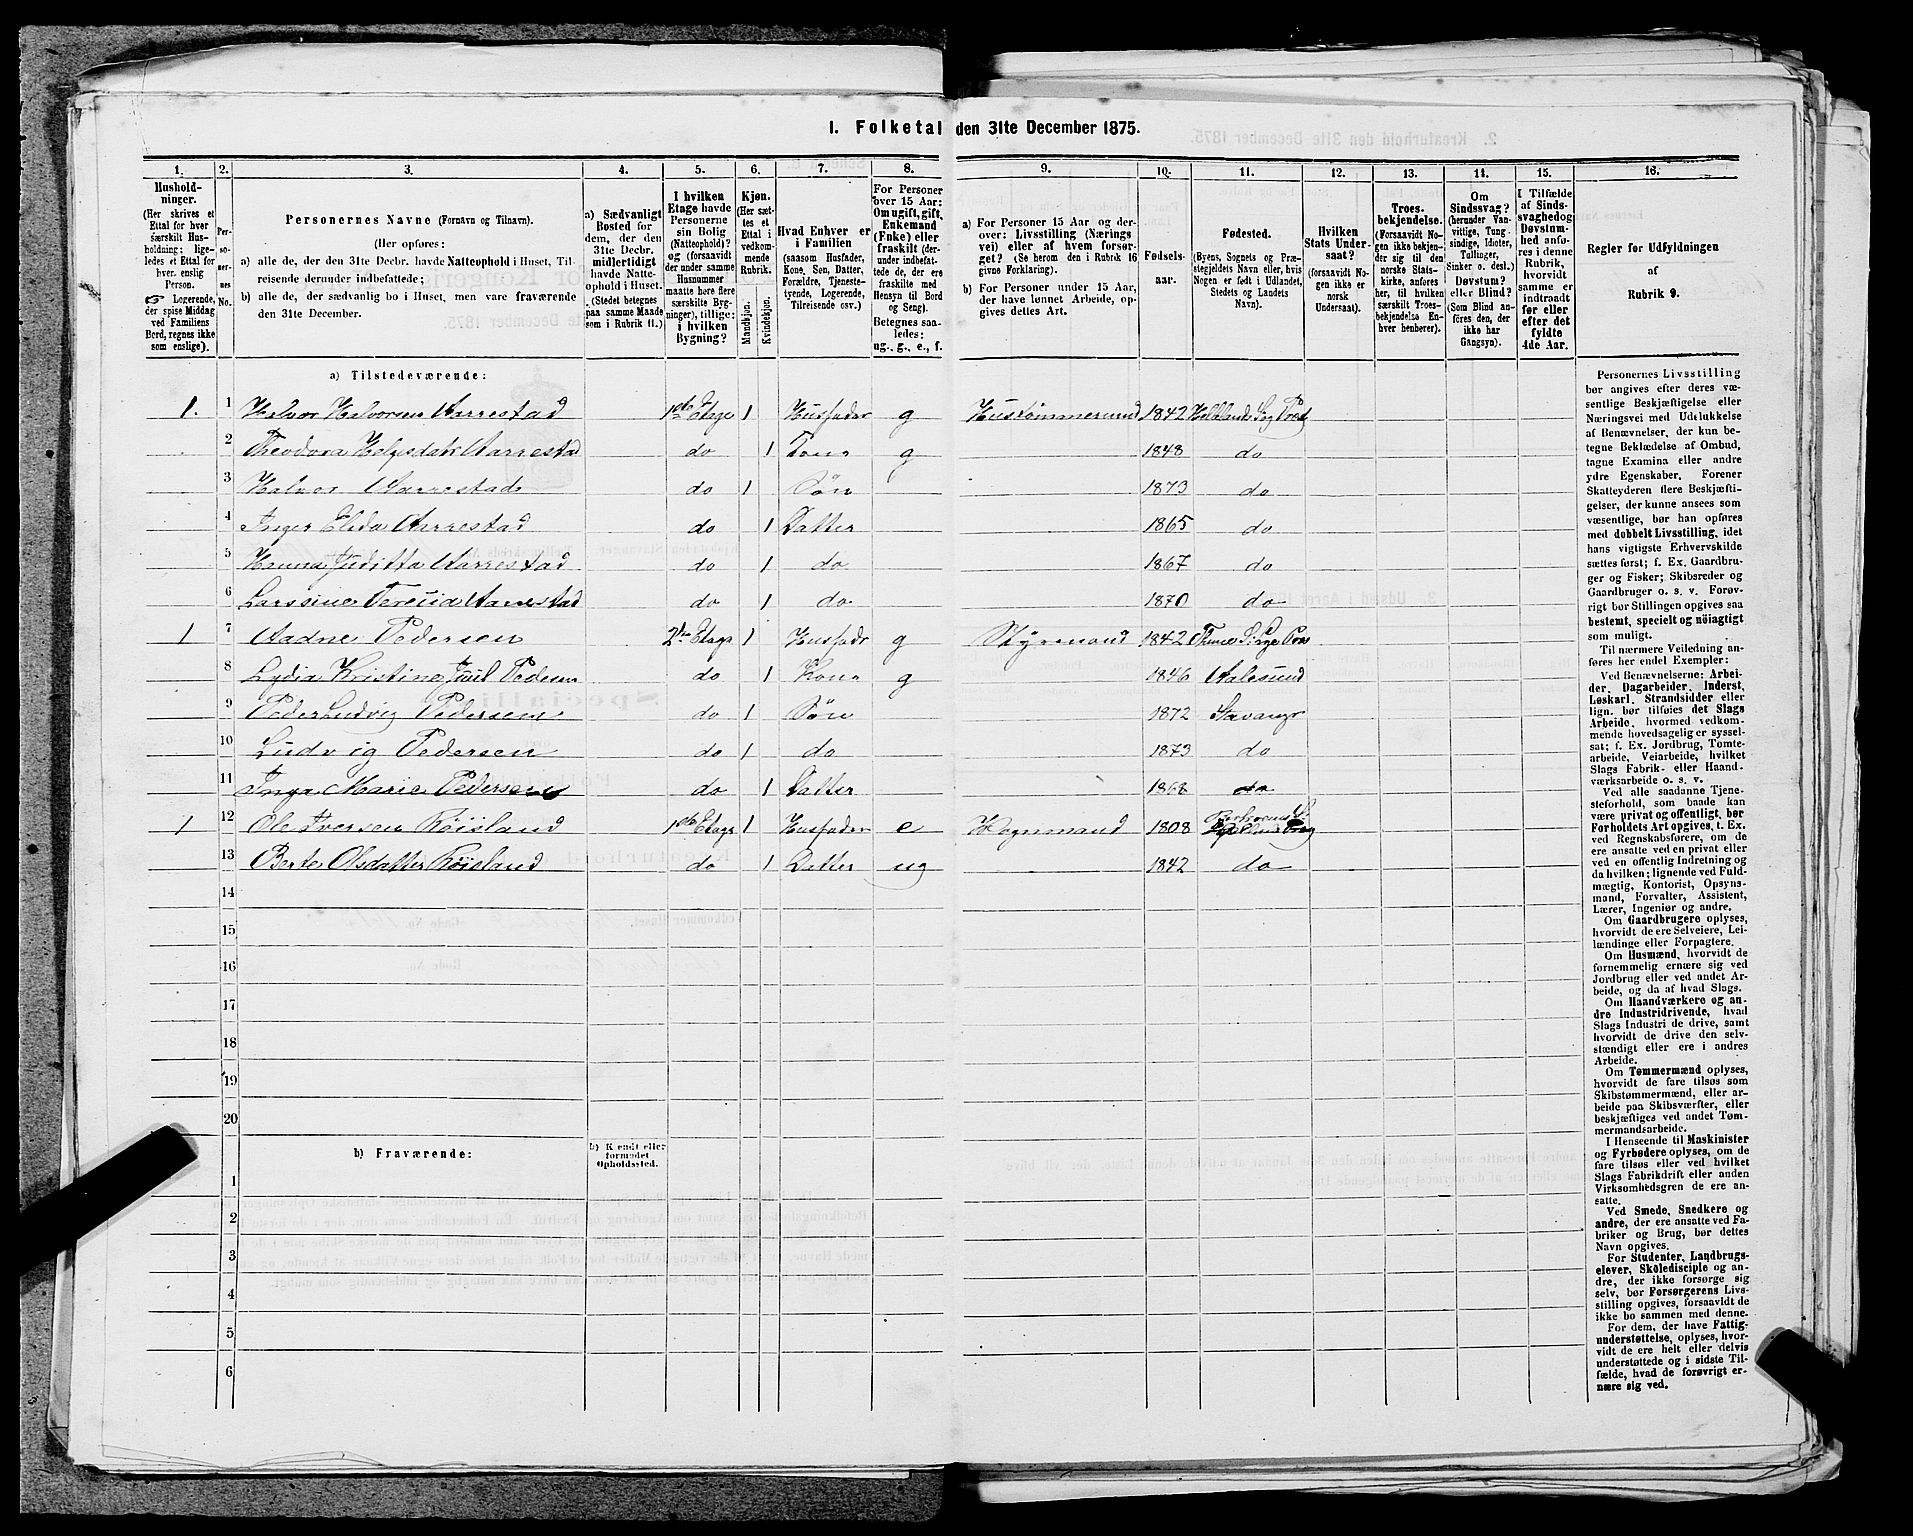 I. Folketal den 31te December 1875.
1. 2. 3. 4. 5. 6. 7. 8. 9. 10. 11. 12. 13. 14. 15. 16.
Hushold-
ninger.
(Her skrives et
Ettal for hver
særskilt Hus-
holdning; lige-
ledes et Ettal for
hver. enslig
Person.
☞ Logerende,
der spise Middag
ved Familiens
Bord, regnes ikke
som enslige).
Per-
so-
ner-
nes
No.
Personernes Navne (Fornavn og Tilnavn).
(Her opføres:
a) alle de, der den 31te Decbr. havde Natteophold i Huset, Til-
reisende derunder indbefattede;
b) alle de, der sædvanlig bo i Huset, men vare fraværende
den 31te December.
a) Sædvanligt
Bosted for
dem, der den
31te Decbr.
midlertidigt
havde Natte-
ophold i Huset.
(Stedet betegnes
paa samme Maade
som i Rubrik 11.)
I hvilken
Etage havde
Personerne
sin Bolig
(Natteophold)?
og (forsaavidt
der under samme
Husnummer
maatte høre flere
særskilte Byg-
ninger), tillige:
i hvilken
Bygning?
Kjøn.
(Her sæt-
tes et
Ettal i
vedkom-
mende
Rubrik.
Mandkjøn.
Kvindekjøn.
Hvad Enhver er
i Familien
(saasom Husfader,
Kone, Søn, Datter,
Forældre, Tjeneste-
tyende, Logerende,
Tilreisende osv.)
For Personer
over 15 Aar:
Om ugift, gift,
Enkemand
(Enke) eller
fraskilt (der-
under indbefat-
tede de, der ere
fraskilte med
Hensyn til Bord
og Seng).
Betegnes saa-
ledes:
ug., g., e., f.
a) For Personer 15 Aar og der-
over: Livsstilling (Nærings
vei) eller af hvem forsør-
get? (Se herom den i Rubrik 16
givne Forklaring).
b) For Personer under 15 Aar,
der have lønnet Arbeide, op-
gives dettes Art.
Fødsels-
aar.
Fødested.
(Byens, Sognets og Præ-
stegjeldets Navn eller, hvis
Nogen er født i Udlandet,
Stedets og Landets
Navn).
Hvilken
Stats Under-
saat?
(forsaavidt No-
gen ikke er
norsk
Undersaat).
Troes-
bekjendelse.
(Forsaavidt No-
gen ikke bekjen-
der sig til den
norske Stats-
kirke, anføres
her, til hvilken
særskilt Troes-
bekjendelse En-
hver henhører).
Om
Sindssvag?
(herunder Van-
vittige, Tung-
sindige, Idioter,
Tullinger,
Sinker o. desl.)
Døvstum?
eller Blind?
(Som Blind an-
føres den, der
ikke har
Gangsyn).
I Tilfælde
af Sinds-
svaghed og
Døvstum-
hed anfø-
res i denne
Rubrik,
hvorvidt
samme er
indtraadt
før eller
efter det
fyldte
4de Aar.
Regler for Udfyldningen
af
Rubrik 9.
a) Tilstedeværende:
1. 1 Halvor Halvorsen Aarrestad 1ste Etage 1 Husfader g Hustømmermand 1842
2 Theodora Helgesdatr Aarrestad do 1 Kone g 1848 do
3 Halvor Aarrestad do 1 Søn 1873 do
4 Inger Elida Aarrestad do 1 Datter 1865 do
5 Hanna Juditta Aarrestad do 1 do 1867 do
6 Larssine Aarrestad do 1 do 1870 do
1 7 Aadne Pedersen 2den Etage 1 Husfader g Styrmand 1842
8 Lydia Kristine Juul Pedersen do 1 Kone g 1846 Aalesund
9 Peder Ludvig Pedersen do 1 Søn 1872 Stavanger
10 Ludvig Pedersen do 1 do 1873 do
11 Inga Marie Pedersen do 1 Datter 1868 do
1 12 Ole Iversen Røisland 1ste Etage 1 Husfader e Vognmand 1808
13 Berte Olsdatter Røisland do 1 Datter ug 1842 do
14
15
16
17
18
19
20
b) Fraværende: b) Kjendt eller
formodet
Opholdssted.
1
2
3
4
5
6
Personernes Livsstilling
bør angives efter deres væ-
sentlige Beskjæftigelse eller
Næringsvei med Udelukkelse
af Benævnelser, der kun be-
tegne Beklædelse af Ombud,
tagne Examina eller andre
ydre Egenskaber. Forener
Skatteyderen flere Beskjæfti-
gelser, der kunne ansees som
væsentlige, bør han opføres
med dobbelt Livsstilling, idet
hans vigtigste Erhvervskilde
sættes først; f. Ex. Gaardbru-
ger og Fisker; Skibsreder og
Gaardbruger o. s. v. Forøv-
rigt bør Stillingen opgives saa
bestemt, specielt og nøiagtigt
som muligt.
Til nærmere Veiledning an-
føres her endel Exempler:
Ved Benævnelserne: Arbei-
der, Dagarbeider, Inderst,
Løskarl, Strandsidder eller
lign. bør tilføies det Slags
Arbeide, hvormed vedkom-
mende hovedsagelig er syssel-
sat; f. Ex. Jordbrug, Tomte-
arbeide, Veiarbeide, hvilket
Slags Fabrik- eller Haand-
værksarbeide o. s. v.
Ved alle saadanne Tjene-
steforhold, som baade kan
være privat og offentligt, bør
Forholdets Art opgives, f. Ex.
ved Regnskabsførere, om de
ere ansatte ved en privat eller
ved en offentlig Indretning og
da hvilken; lignende ved Fuld-
mægtig, Kontorist, Opsyns-
mand, Forvalter, Assistent,
Lærer, Ingeniør og andre.
Om Gaardbrugere oplyses,
hvorvidt de ere Selveiere, Lei-
lændinge eller Forpagtere.
Om Husmænd, hvorvidt de
fornemmelig ernære sig ved
Jordbrug eller ved andet Ar-
beide, og da af hvad Slags.
Om Haandværkere og an-
dre Industridrivende, hvad
Slags Industri de drive, samt
hvorvidt de drive den selv-
stændigt eller ere i andres
Arbeide.
Om Tømmermænd oplyses,
hvorvidt de fare tilsøs som
Skibstømmermænd, eller ar-
beide paa Skibsværfter, eller
beskjæftiges ved andet Tøm-
mermandsarbeide.
I Henseende til Maskinister
og Fyrbødere oplyses, om de
fare tilsøs eller ved hvilket
Slags Fabrikdrift eller anden
Virksomhedsgren de ere an-
satte.
Ved Smede, Snedkere og
andre, der ere ansatte ved Fa-
briker og Brug, bør dettes
Navn opgives.
For Studenter, Landbrugs-
elever, Skoledisciple og an-
dre, der ikke forsørge sig
selv, bør Forsørgerens Livs-
stilling opgives, forsaavidt de
ikke bo sammen med denne.
For dem, der have Fattig-
understøttelse, oplyses, hvor-
vidt de ere helt eller delvis
understøttede og i sidste Til-
fælde, hvad de forøvrigt er-
nære sig ved.